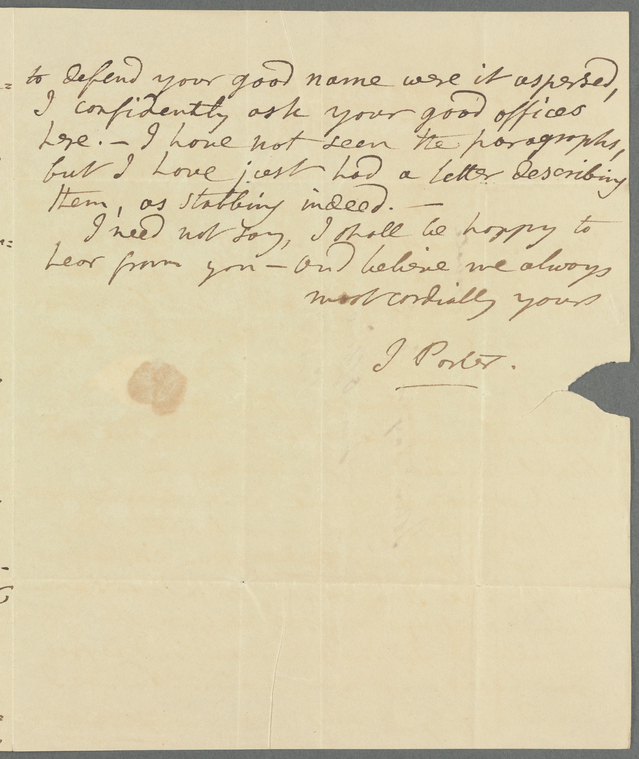 to defend your good name were it aspersed,
I confidently ask your good offices
here. – I have not seen the paragraphs,
but I have just had a letter describing
them, as stabbing indeed. –
I need not say, I shall be happy to
hear from you – and believe me always
most cordially yours
J Porter.